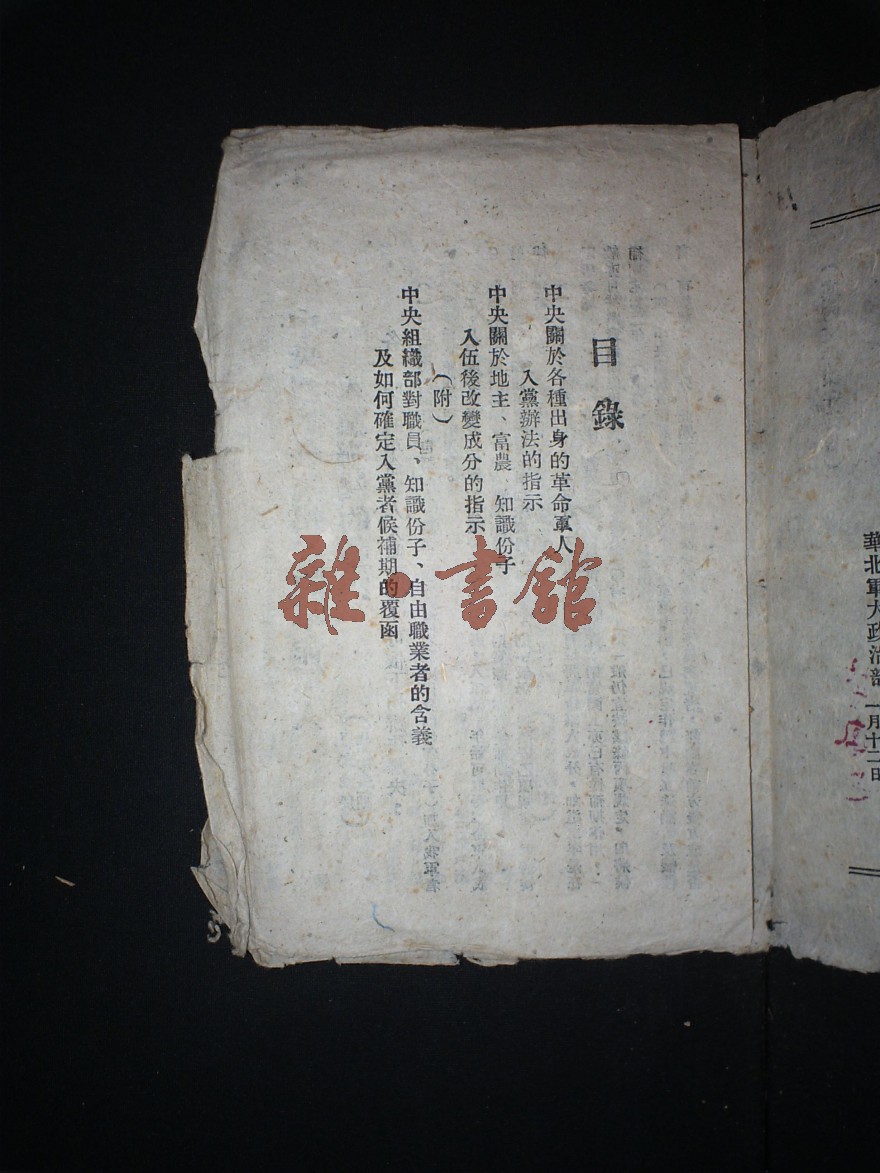 華北軍大政治部 一月十二日
目錄
中央關於各種出身的革命軍人
入黨辦法的指示
中央關於地主、富農、知識份子
入伍後改變成分的指示
(附)
中央組織部對職員、知識份子、自由職業者的含義
及如何確定入黨者候補期的覆函
雜·書館